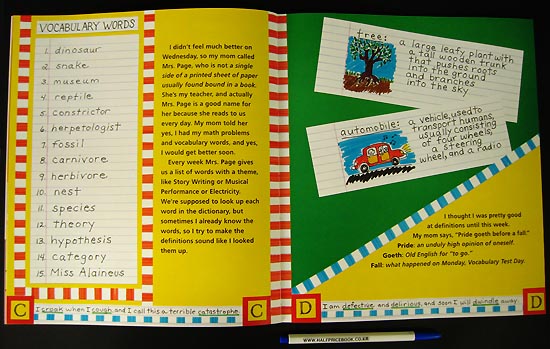 VOCABULARY WORDS
1. dinosaur
2. snake
3. museum
4. reptile
5. constrictor
6. herpetologist
7. fossil
8. carnivore
9. herbivore
10. nest
11. species
12. theory
13. hypothesis
14. category
15. Miss Alaineus
I didn't feel much better on
Wednesday, so my mom called
Mrs. Page, who is not a single
side of a printed sheet of paper
usually found bound in a book.
She's my teacher, and actually
Mrs. Page is a good name for
her because she reads to us
every day. My mom told her
yes, I had my math problems
and vocabulary words, and yes,
I would get better soon.
Every week Mrs. Page gives
us a list of words with a theme,
like Story Writing or Musical
Performance or Electricity.
We're supposed to look up each
word in the dictionary, but
sometimes I already know the
words, so I try to make the
definitions sound like I looked
them up.
C
I croak when I cough, and I call this a terrible catastrophe.
C
tree: a large leafy plant with
a tall wooden trunk
that pushes roots
into the ground
and branches
into the sky
automobile: a vehicle used to
transport humans,
usually consisting
of four wheels,
a steering
wheel, and a radio
I thought I was pretty good
at definitions until this week.
My mom says, "Pride goeth before a fall."
Pride: an unduly high opinion of oneself.
Goeth: Old English for "to go."
Fall: what happened on Monday, Vocabulary Test Day.
D
I am defective and delirious, and soon I will dwindle away.
D
WWW.HALFPRICEBOOK.CO.KR